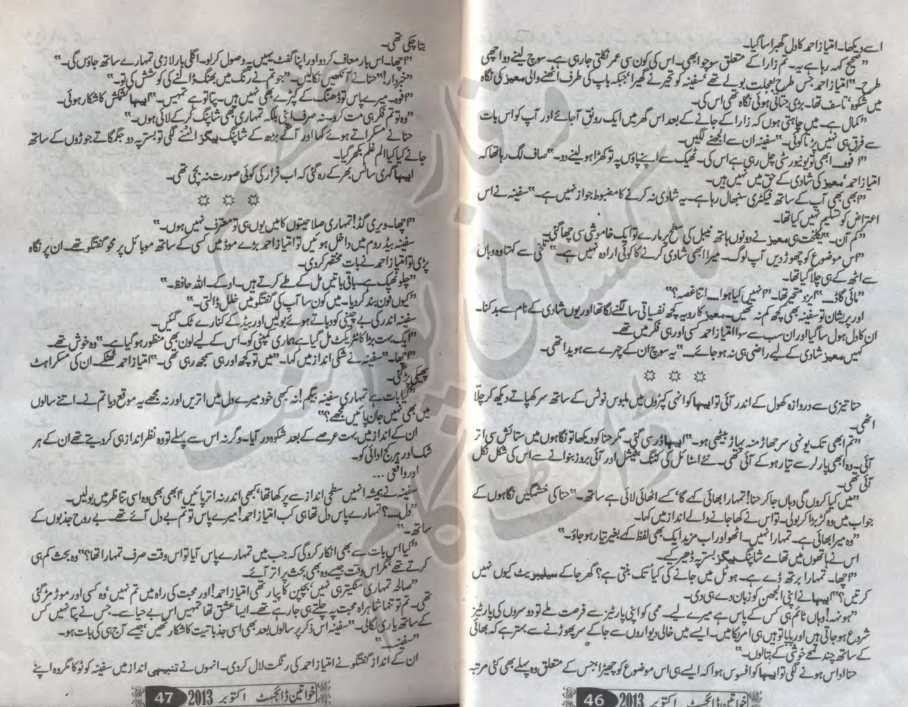 اسے دیکھا۔ امتیاز احمد کا دل گھبرا سا گیا۔
"صحیح کہہ رہا ہے یہ۔ تم زارا کے متعلق سوچو ابھی۔ اس کی کون سی عمر نکلی جا رہی ہے۔ سوچ لینے دو اچھی
طرح۔" امتیاز احمد جس طرح بعجلت بولے تھے سفینہ کو تحیر نے گھیرا جبکہ باپ کی طرف اٹھنے والی معیز کی نگاہ
میں شکوہ تاسف تھا۔ بڑی جتاتی ہوئی نگاہ تھی اس کی۔
"کمال ہے۔ میں چاہتی ہوں کہ زارا کے جانے کے بعد اس گھر میں ایک رونق آ جائے اور آپ کو اس بات
سے فرق ہی نہیں پڑتا کوئی۔" سفینہ ان سے الجھنے لگیں۔
"افوہ۔ ابھی تو یونیورسٹی چل رہی ہے اس کی۔ ٹھیک سے اپنے پاؤں پہ تو کھڑا ہو لینے دو۔" صاف لگ رہا تھا کہ
امتیاز احمد، معیز کی شادی کے حق میں نہیں ہیں۔
"ابھی بھی آپ کے ساتھ فیکٹری سنبھال رہا ہے۔ یہ شادی نہ کرنے کا مضبوط جواز نہیں ہے۔" سفینہ نے اس
اعتراض کو تسلیم نہیں کیا تھا۔
"کم آن۔" یکلخت ہی معیز نے دونوں ہاتھ ٹیبل کی سطح پر مارے تو ایک خاموشی سی چھا گئی۔
"اس موضوع کو چھوڑ دیں آپ لوگ۔ میرا ابھی شادی کرنے کا کوئی ارادہ نہیں ہے۔" تلخی سے کہتا وہ وہاں
سے اٹھ کے ہی چلا گیا تھا۔
"مائی گاڈ۔" ایزد متحیر تھا۔ "انہیں کیا ہوا۔۔۔ اتنا غصہ؟"
اور پریشان تو سفینہ بھی کچھ کم نہ تھیں۔ معیز کا رویہ کچھ نفسیاتی سا لگنے لگا تھا اور یوں شادی کے نام سے بدکنا۔
ان کا دل ہول سا گیا اور ان سب سے سوا امتیاز احمد کسی اور ہی فکر میں تھے۔
کہیں معیز شادی کے لیے راضی ہی نہ ہو جائے۔" یہ سوچ ان کے چہرے سے ہویدا تھی۔
حنا تیزی سے دروازہ کھول کے اندر آئی تو ایبہا کو انہی کپڑوں میں ملبوس نوٹس کے ساتھ سر کھپاتے دیکھ کر چلا
اٹھی۔
"تم ابھی تک یونہی سر جھاڑ منہ پہاڑ بیٹھی ہو۔" ایبہا ڈر سی گئی۔ مگر حنا کو دیکھا تو نگاہوں میں ستائش سی اتر
آئی۔ وہ ابھی پارلر سے تیار ہو کے آئی تھی۔ نئے اسٹائل کی کٹنگ، فیشل اور آئی بروز بنوانے سے اس کی شکل نکل
آئی تھی۔
"میں کیا کروں گی وہاں جا کر حنا! تمہارا بھائی کہے گا، کسے اٹھا لائی ہے ساتھ۔" حنا کی خشمگیں نگاہوں کے
جواب میں وہ گڑبڑا کر بولی۔ تو اس نے کھا جانے والے انداز میں کہا۔
"وہ میرا بھائی ہے۔ تمہارا نہیں۔ اٹھو اور اب مزید ایک بھی لفظ کہے بغیر تیار ہو جاؤ۔"
اس نے ہاتھوں میں تھامے شاپنگ بیگز بستر پہ ڈھیر کیے۔
"اچھا۔ تمہارا برتھ ڈے ہے۔ ہوٹل میں جانے کی کیا تک بنتی ہے؟ گھر جا کے سیلیبریٹ کیوں نہیں
کرتیں؟" ایبہا نے اپنی الجھن کو زبان دے ہی دی۔
"ہونہہ! وہاں ٹائم ہی کس کے پاس ہے میرے لیے۔ ممی کو اپنی پارٹیز سے فرصت ملے تو دوسروں کی پارٹیز
شروع ہو جاتی ہیں اور پاپا تو ہیں ہی امریکا میں۔ ایسے میں خالی دیواروں سے جا کے سر پھوڑنے سے بہتر ہے کہ بھائی
کے ساتھ چند لمحے خوشی کے بتا لوں۔"
حنا اداس ہونے لگی تو ایبہا کو افسوس ہوا کہ ایسے ہی اس موضوع کو چھیڑا جس کے متعلق وہ پہلے بھی کئی مرتبہ
خواتین ڈائجسٹ اکتوبر 2013 46
بتا چکی تھی۔
"اچھا۔ اس بار معاف کر دو اور اپنا گفٹ یہیں پہ وصول کر لو۔ اگلی بار لازمی تمہارے ساتھ جاؤں گی۔"
"خبردار!" حنا نے آنکھیں نکالیں۔ "جو تم نے رنگ میں بھنگ ڈالنے کی کوشش کی تو۔"
"افوہ۔ میرے پاس تو ڈھنگ کے کپڑے بھی نہیں ہیں۔ پتا تو ہے تمہیں۔" ایبہا کشمکش کا شکار ہوئی۔
"وہ تو تم فکر ہی مت کرو۔ نہ صرف اپنی بلکہ تمہاری بھی شاپنگ کر کے لائی ہوں۔"
حنا نے مسکراتے ہوئے کہا اور آگے بڑھ کے شاپنگ بیگز الٹنے لگی تو بستر پہ دو جگمگاتے جوڑوں کے ساتھ
جانے کیا کیا الم غلم بکھر گیا۔
ایبہا گہری سانس بھر کے رہ گئی کہ اب فرار کی کوئی صورت نہ بچی تھی۔
"اچھا۔ ویری گڈ! تمہاری صلاحیتوں کا میں یوں ہی تو معترف نہیں ہوں۔"
سفینہ بیڈ روم میں داخل ہوئیں تو امتیاز احمد بڑے موڈ میں کسی کے ساتھ موبائل پر محو گفتگو تھے۔ ان پر نگاہ
پڑی تو امتیاز احمد نے بات مختصر کر دی۔
"چلو ٹھیک ہے۔ باقی باتیں مل کے طے کرتے ہیں۔ اوکے۔ اللہ حافظ۔"
"کیوں فون بند کر دیا۔ میں کون سا آپ کی گفتگو میں خلل ڈالتی۔"
سفینہ اندر کی بے چینی کو دباتے ہوئے بولیں اور بیڈ کے کنارے ٹک گئیں۔
"ایک بہت بڑا کانٹریکٹ مل گیا ہے ہماری کمپنی کو۔ اس کے لیے لون بھی منظور ہو گیا ہے۔" وہ خوش تھے۔
"اچھا۔" سفینہ نے شکی انداز میں کہا۔ "میں تو کچھ اور ہی سمجھ رہی تھی۔" امتیاز احمد ٹھٹکے۔ ان کی مسکراہٹ
پھیکی پڑ گئی۔
"کیا بات ہے تمہاری سفینہ بیگم! نہ کبھی خود میرے دل میں اتریں اور نہ مجھے یہ موقع دیا تم نے۔ اتنے سالوں
میں بھی نہیں جان پائیں مجھے؟"
ان کے انداز میں بہت عرصے کے بعد شکوہ در آیا۔ وگرنہ اس سے پہلے تو وہ نظر انداز ہی کر دیتے تھے ان کے ہر
شک اور ہر کج ادائی کو۔
اور واقعی۔۔۔
سفینہ نے ہمیشہ انہیں سطحی انداز سے پرکھا تھا، کبھی اندر نہ اتر پائیں، ابھی بھی وہ اسی تناظر میں بولیں۔
"دل۔۔۔؟ تمہارے پاس دل تھا ہی کب امتیاز احمد! میرے پاس تو تم بے دل آئے تھے۔ بے روح جذبوں کے
ساتھ۔"
"کیا اس بات سے بھی انکار کرو گی کہ جب میں تمہارے پاس آیا تو اس وقت صرف تمہارا تھا؟" وہ بحث کم ہی
کرتے تھے مگر اس وقت جیسے وہ بھی بحث پر اتر آئے۔
"صالحہ تمہاری سیکنڈ منگیتر نہیں بچپن کا پیار تھی امتیاز احمد! اور محبت کی راہ میں تم نہیں، وہ کسی اور موڑ مڑ گئی
تھی۔ تم تو تنہا تنہا راہ محبت پہ چلتے ہی جا رہے تھے۔ ایسا عشق تھا تمہیں اس بے حیا سے۔ جس نے پتا نہیں کس
کے ساتھ یاری لگا لی۔" سفینہ اس ذکر پر سالوں بعد بھی اسی جذباتیت کا شکار تھیں جیسے آج ہی کی بات ہو۔
"سفینہ۔"
ان کے انداز گفتگو نے امتیاز احمد کی رنگت لال کر دی۔ انہوں نے تنبیہی انداز میں سفینہ کو ٹوکا مگر وہ اپنے
خواتین ڈائجسٹ اکتوبر 2013 47